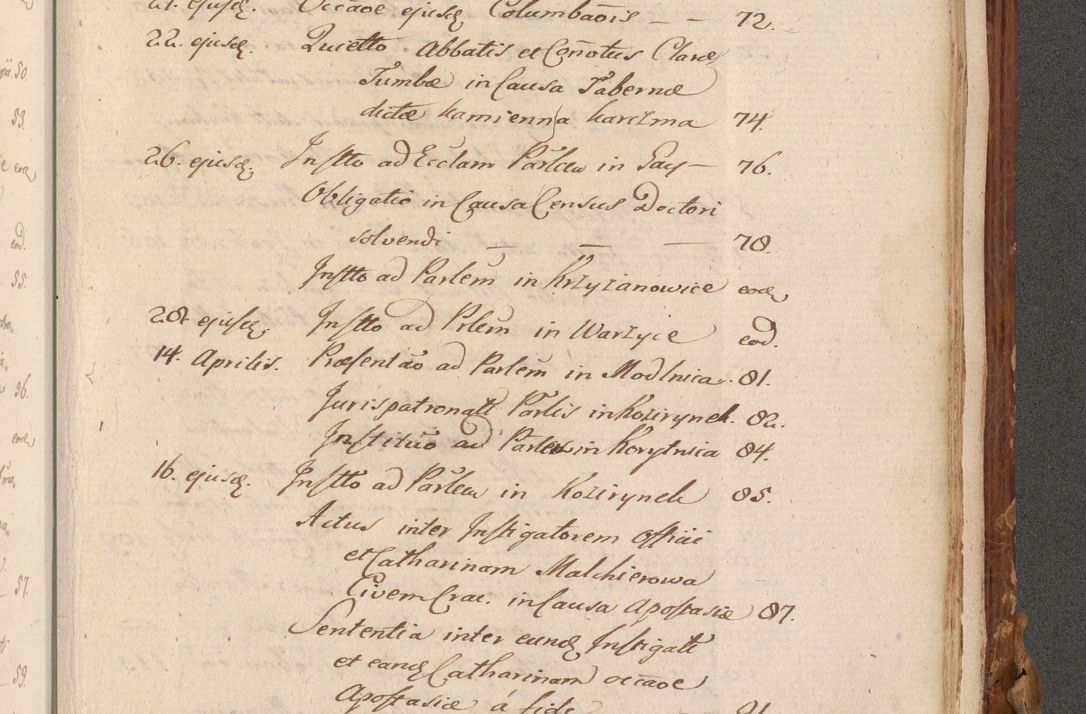 21. ejusdę. Occãoe ejusdę Columbaõis — — 72.
22. ejusdę. Quietto Abbatis et Coñvtus Claræ
Tumbæ in Causa Tabernæ
dictæ kamienna karczma 74.
26. ejusdę. Instto ad Ecclam Parlem in Gay — 76.
Obligatio in Causa Census Doctori
solvendi — — — 78.
Instto ad Parlem in Krzyzanowice eod.
28. ejusdę. Instto ad Prlem in Warzyce eod.
14. Aprilis. Præsentão ad Parlem in Modlnica. 81.
Jurispatronatt Parlis in Kozirynek. 82.
Institutio ad Parlem in Korytnica 84.
16. ejusdę. Instto ad Parlem in Kozirynek 85.
Actus inter Instigatorem Officii
et Catharinam Malchierowa
Civem Crac. in Causa Apostasiæ 87.
Sententia inter eundę Instigatt
et eandę Catharinam occãoe
Apostasiæ á fide — 91
50.
53.
eod.
eod.
55.
56.
eod.
57.
59.